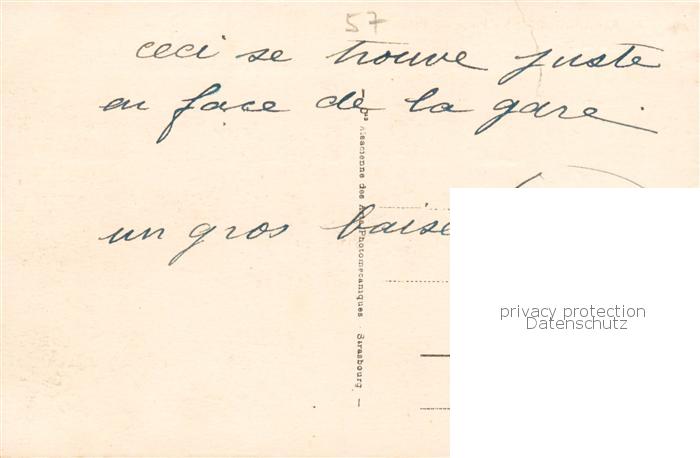 57
ceci se trouve juste
en face de la gare.
un gros baise
Cie Alsacienne des Arts Photomécaniques - Strasbourg -
privacy protection
Datenschutz